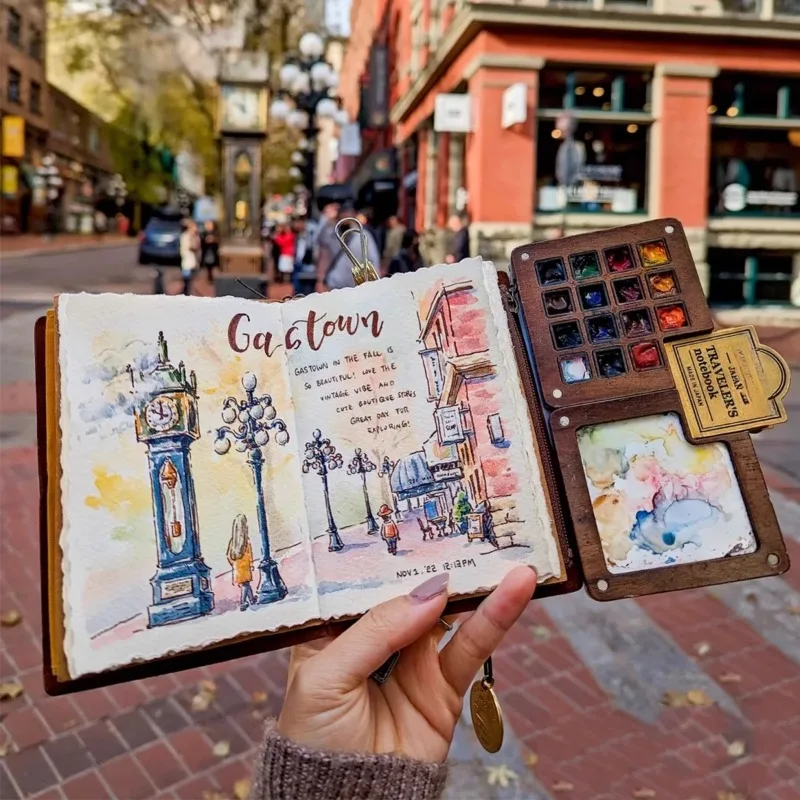 Gastown
GASTOWN IN THE FALL IS
SO BEAUTIFUL! LOVE THE
VINTAGE VIBE AND
CUTE BOUTIQUE STORES
GREAT DAY FOR
EXPLORING!
NOV 1, '22 12:12PM
TRAVELER'S
notebook
MADE IN JAPAN